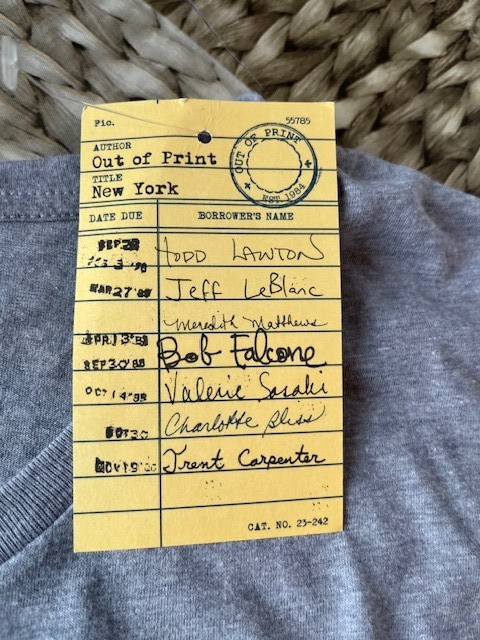 Fic. 55785
AUTHOR
Out of Print
TITLE
New York
OUT OF PRINT
EST. 1984
DATE DUE BORROWER'S NAME
SEP 28 TODD LAWTON
MAR 27 '85 Jeff LeBlanc
Meredith Matthews
APR 13 '88 Bob Falcone
SEP 30 '88 Valerie Sasaki
OCT 14 '88 Charlotte Bliss
OCT 30
NOV 19 Trent Carpenter
CAT. NO. 23-242